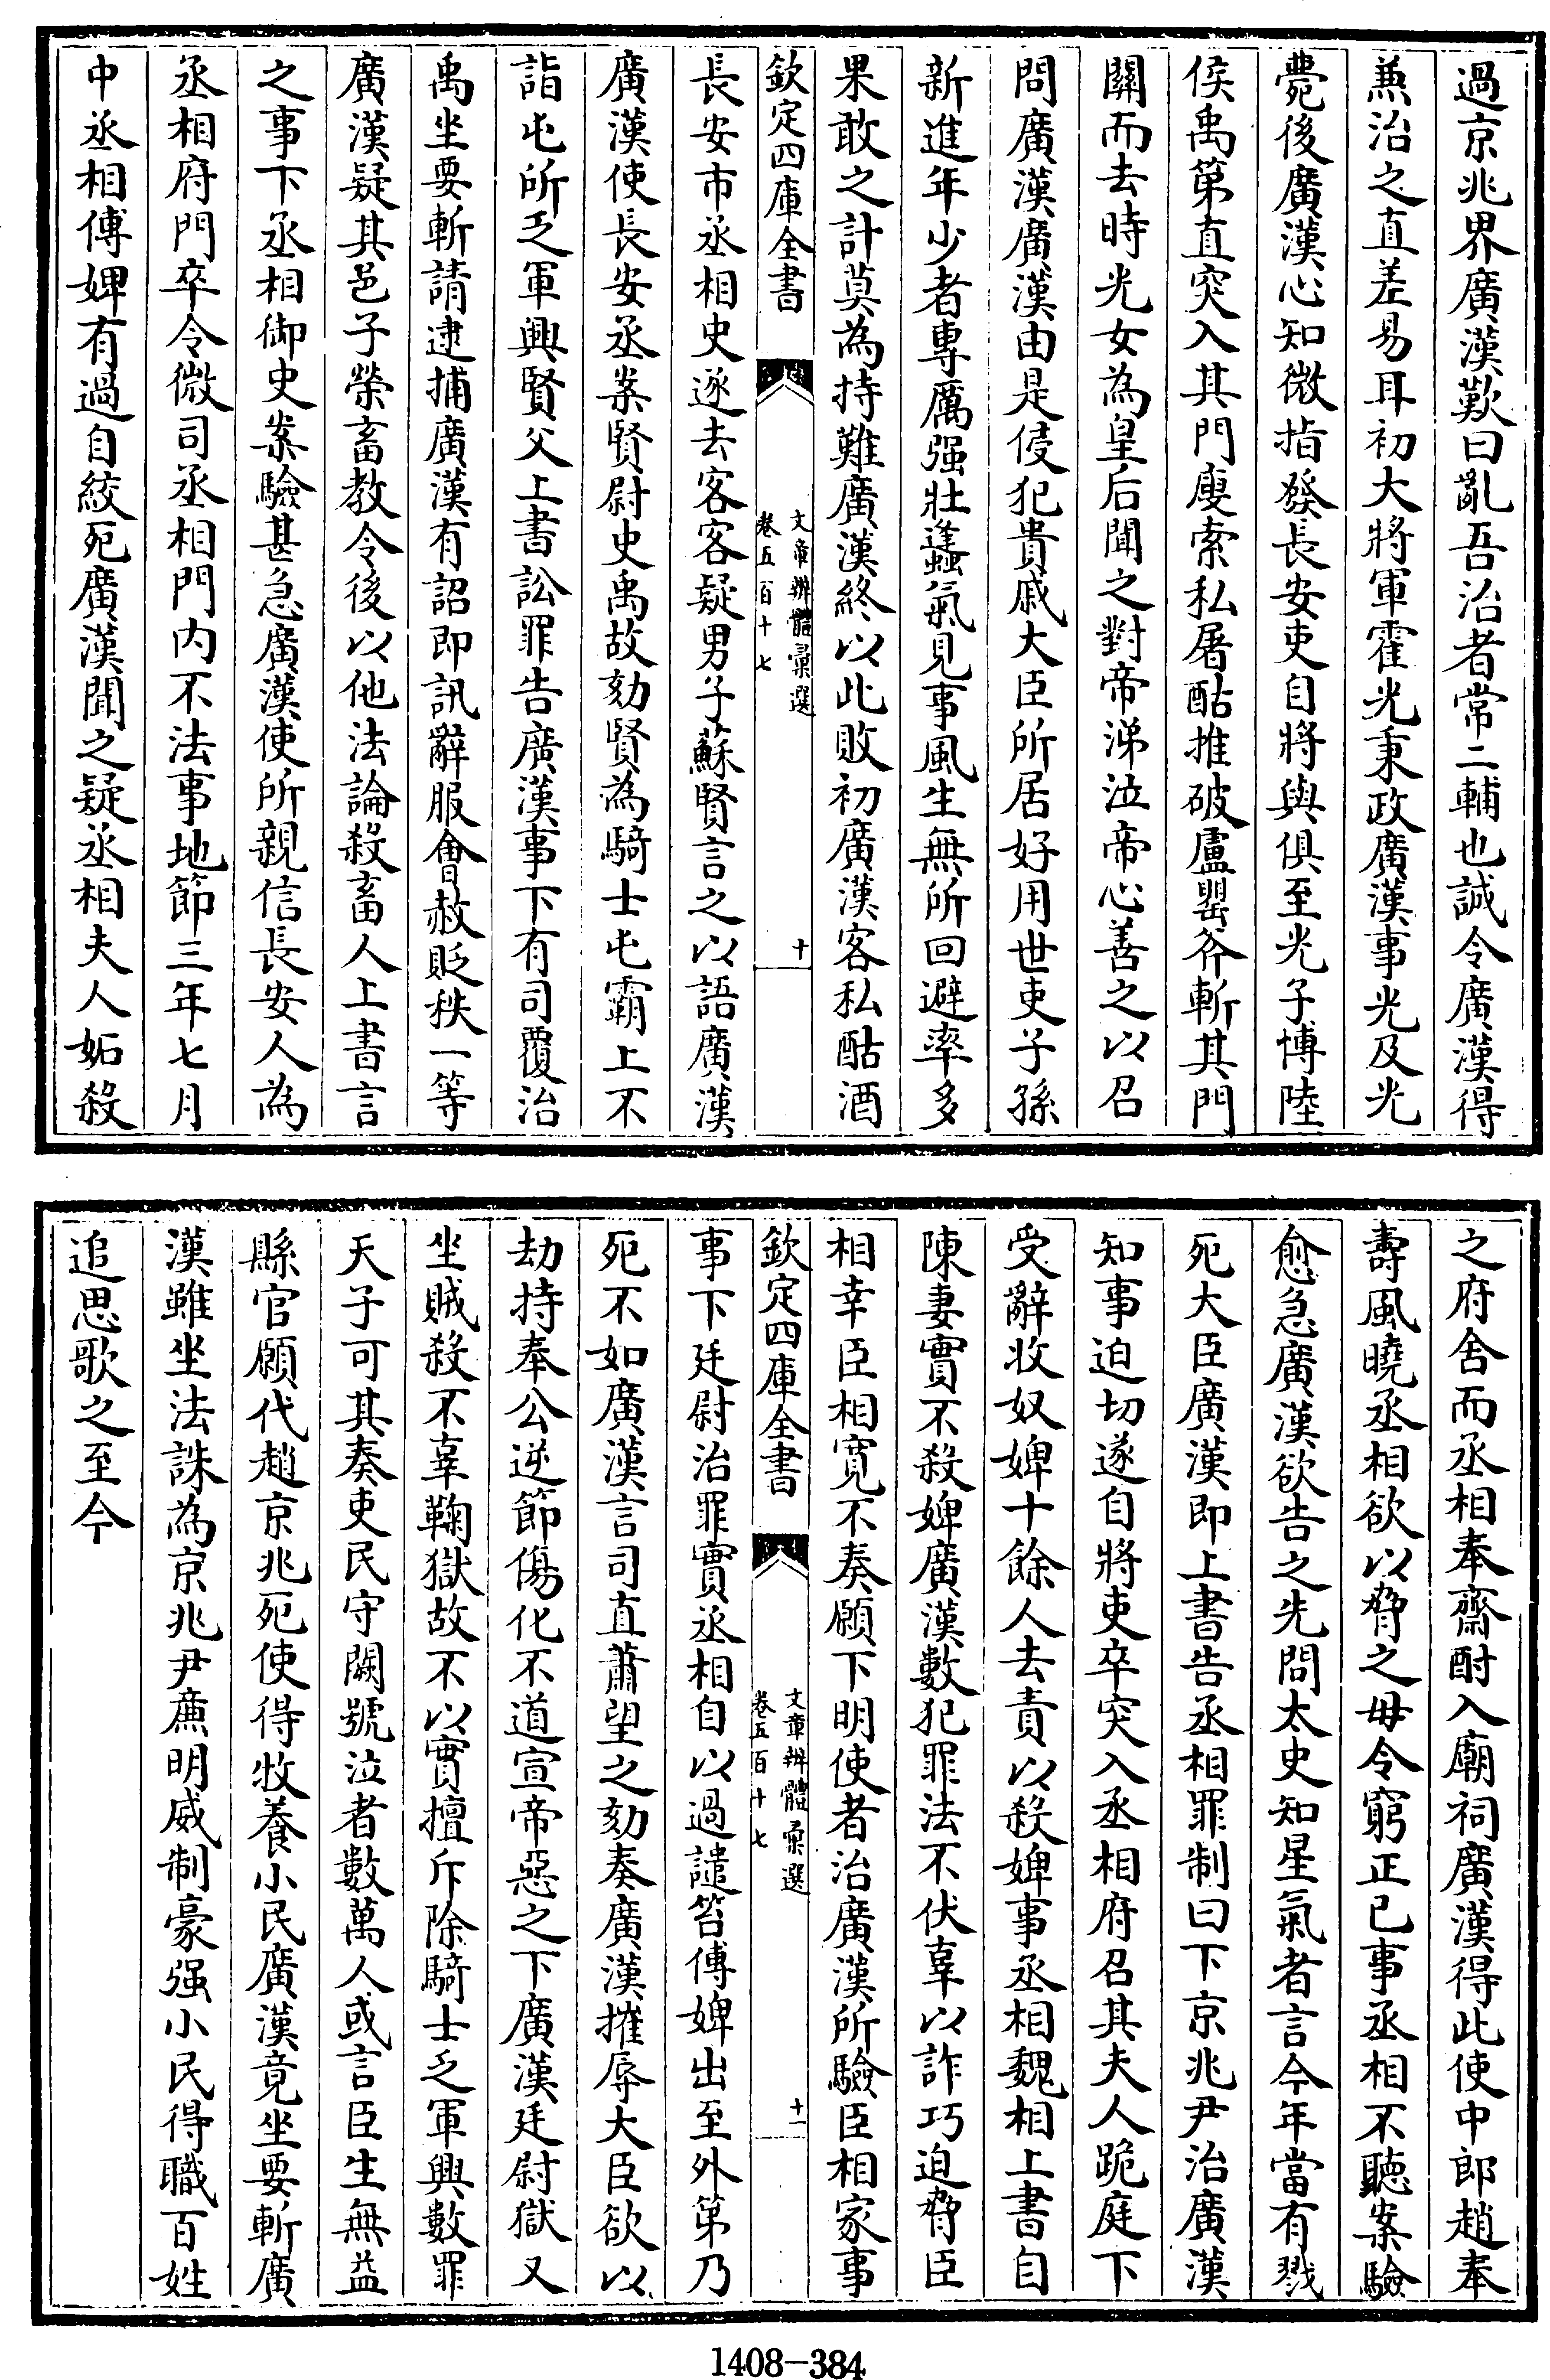 過京兆界廣漢歎曰亂吾治者常二輔也誠令廣漢得
兼治之直差易耳初大將軍霍光秉政廣漢事光及光
薨後廣漢心知微指發長安吏自將與俱至光子博陸
侯禹第直突入其門廋索私屠酤推破盧罌斧斬其門
關而去時光女為皇后聞之對帝涕泣帝心善之以召
問廣漢廣漢由是侵犯貴戚大臣所居好用世吏子孫
新進年少者專厲强壯蠭氣見事風生無所回避率多
果敢之計莫為持難廣漢終以此敗初廣漢客私酤酒
欽定四庫全書
文章辨體彙選
卷五百十七
十
長安市丞相史逐去客客疑男子蘇賢言之以語廣漢
廣漢使長安丞案賢尉史禹故劾賢為騎士屯霸上不
詣屯所乏軍興賢父上書訟罪告廣漢事下有司覆治
禹坐要斬請逮捕廣漢有詔即訊辭服會赦貶秩一等
廣漢疑其邑子榮畜教令後以他法論殺畜人上書言
之事下丞相御史案驗甚急廣漢使所親信長安人為
丞相府門卒令微司丞相門内不法事地節三年七月
中丞相傅婢有過自絞死廣漢聞之疑丞相夫人妬殺
之府舍而丞相奉齋酎入廟祠廣漢得此使中郎趙奉
壽風曉丞相欲以脅之毋令窮正已事丞相不聽案驗
愈急廣漢欲告之先問太史知星氣者言今年當有戮
死大臣廣漢即上書告丞相罪制曰下京兆尹治廣漢
知事迫切遂自將吏卒突入丞相府召其夫人跪庭下
受辭收奴婢十餘人去責以殺婢事丞相魏相上書自
陳妻實不殺婢廣漢數犯罪法不伏辜以詐巧迫脅臣
相幸臣相寬不奏願下明使者治廣漢所驗臣相家事
欽定四庫全書
文章辨體彙選
卷五百十七
十一
事下廷尉治罪實丞相自以過譴笞傅婢出至外第乃
死不如廣漢言司直蕭望之劾奏廣漢摧辱大臣欲以
劫持奉公逆節傷化不道宣帝惡之下廣漢廷尉獄又
坐賊殺不辜鞠獄故不以實擅斥除騎士乏軍興數罪
天子可其奏吏民守闕號泣者數萬人或言臣生無益
縣官願代趙京兆死使得牧養小民廣漢竟坐要斬廣
漢雖坐法誅為京兆尹廉明威制豪强小民得職百姓
追思歌之至今
1408-384